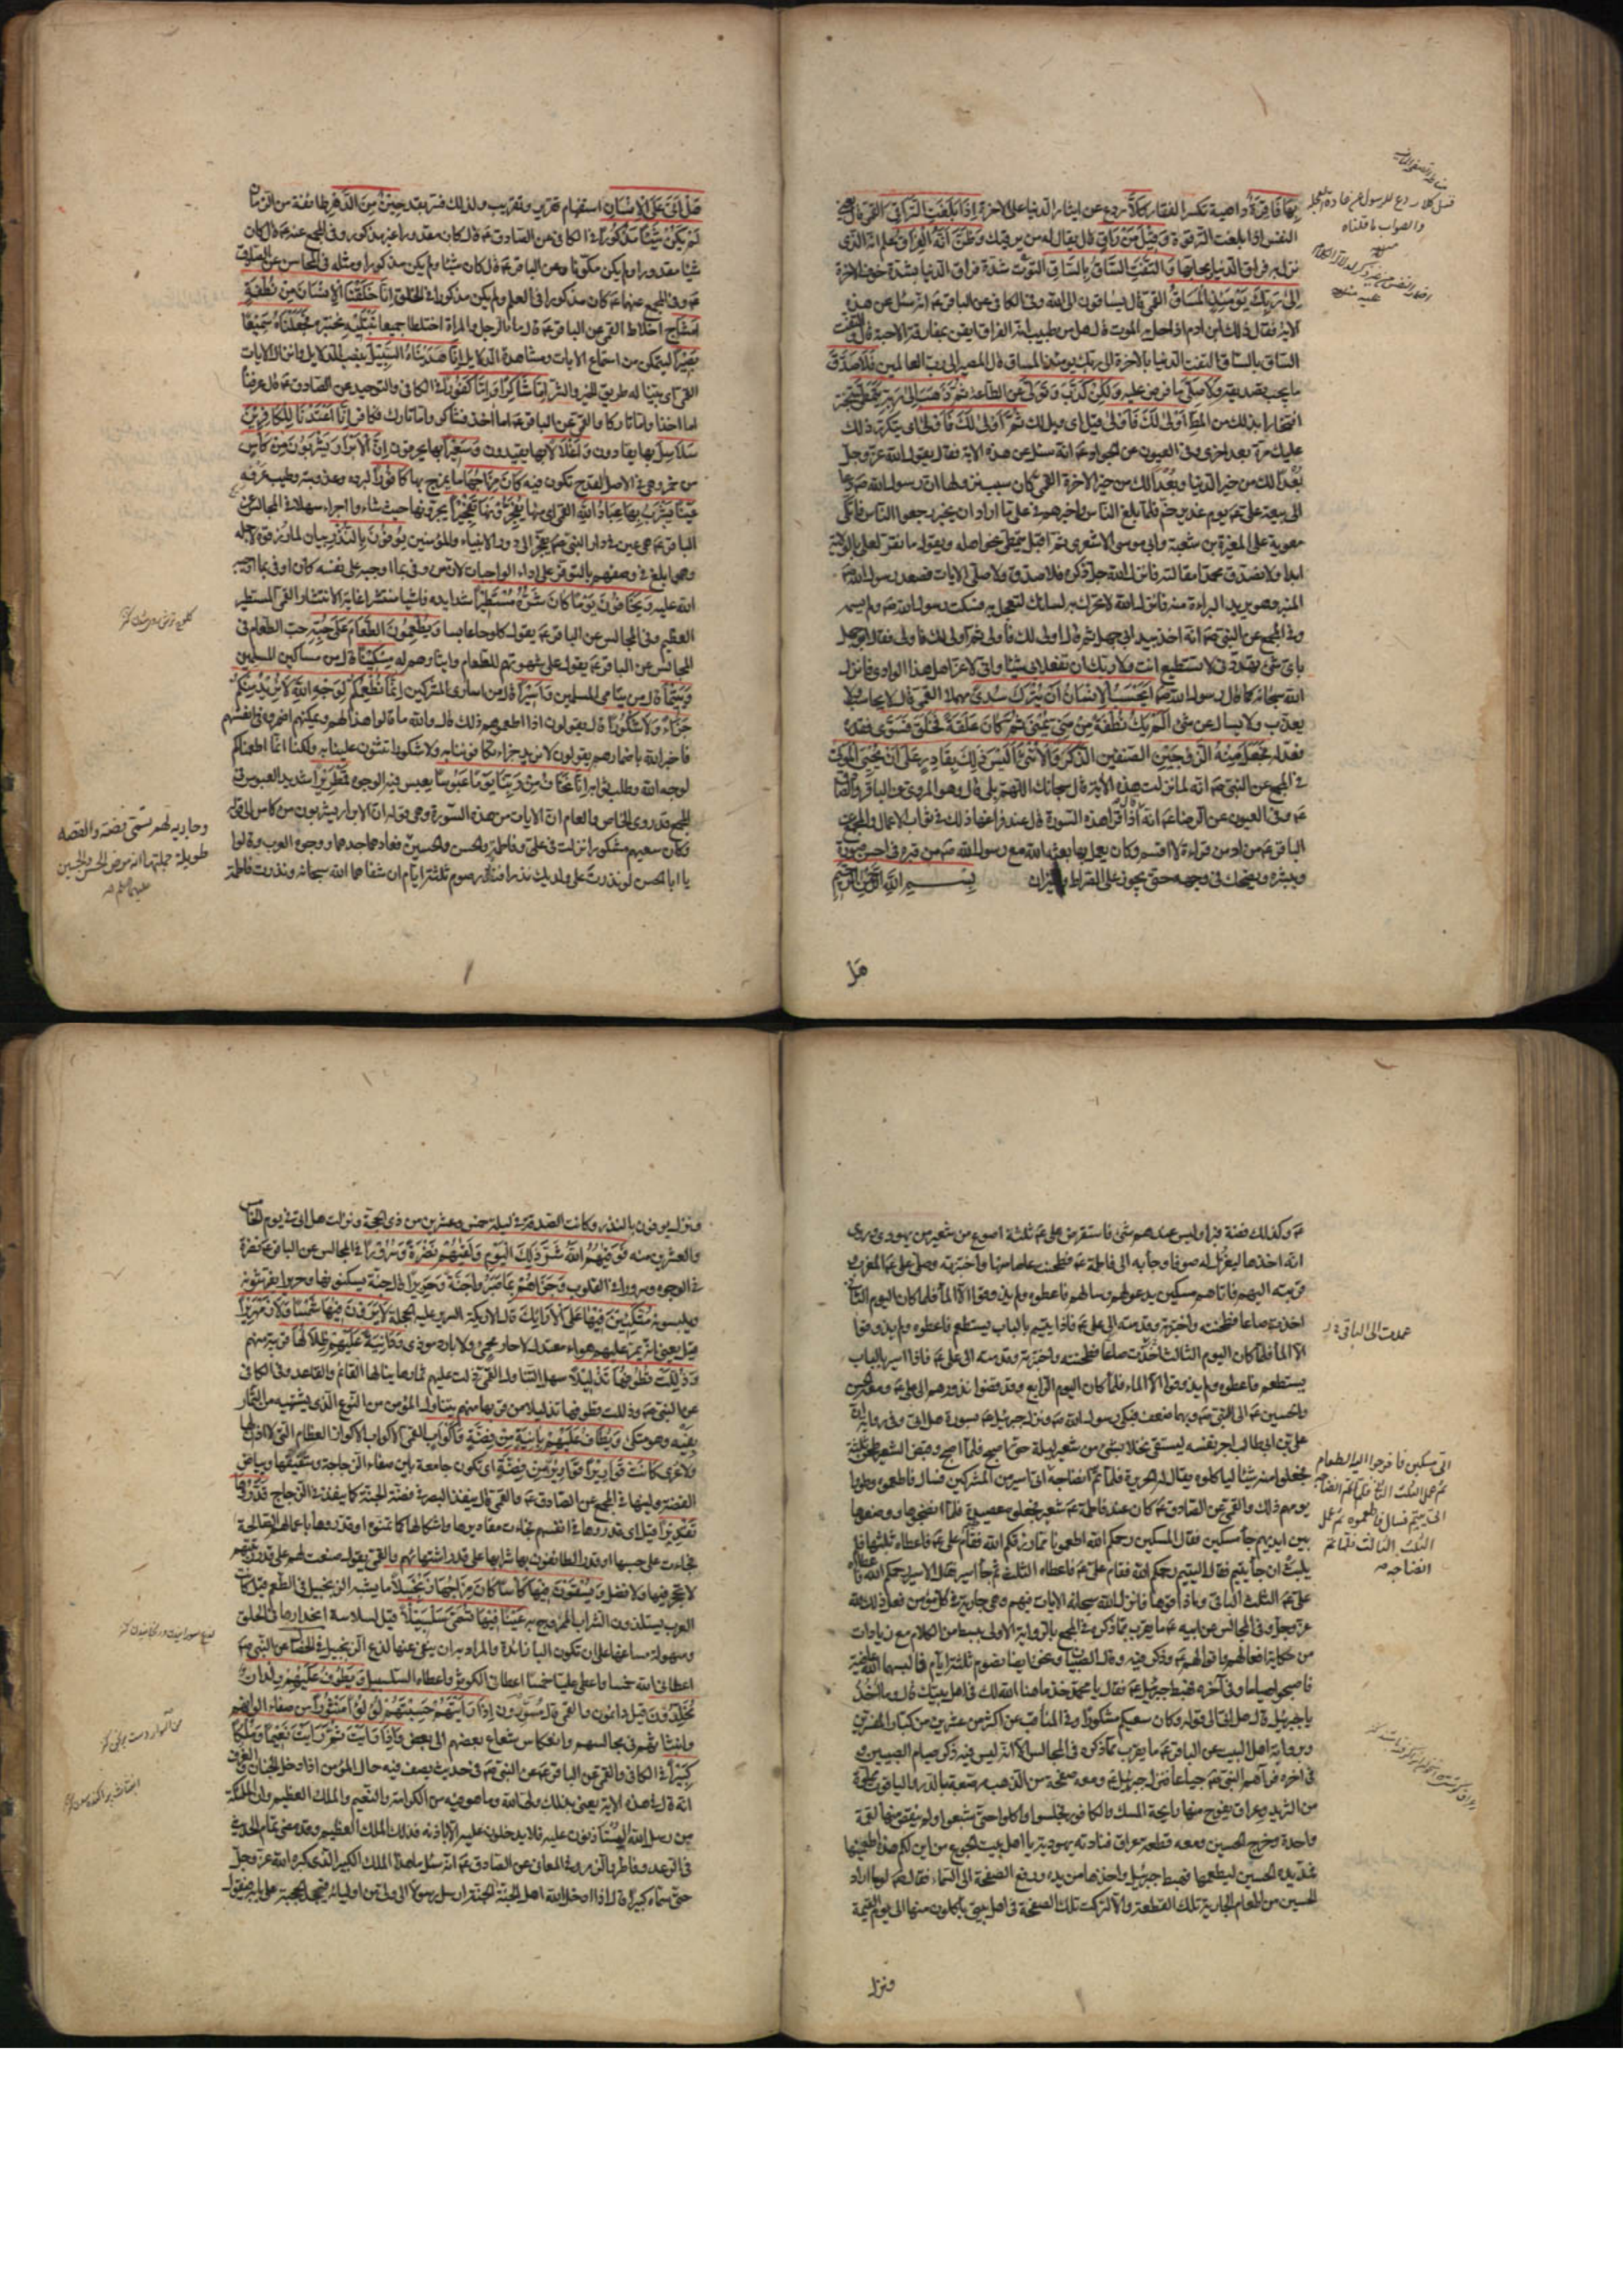 بِهَا فَاقِرَةٌ داهية تكسر الفقار كَلَّا ردع عن ايثار الدنيا على الاخرة إِذَا بَلَغَتِ التَّرَاقِيَ القمي قال يعني
النفس اذا بلغت الترقوة وَقِيلَ مَنْ رَاقٍ قال يقال له من يرقيك وَظَنَّ أَنَّهُ الْفِرَاقُ علم انه الذي
نزل به فراق الدنيا ومحابها وَالْتَفَّتِ السَّاقُ بِالسَّاقِ التوت شدة فراق الدنيا بشدة خوف الاخرة
إِلَى رَبِّكَ يَوْمَئِذٍ الْمَسَاقُ القمي قال يساقون الى الله وفي الكافي عن الباقر عه انه سئل عن هذه
الاية فقال ذلك ابن ادم اذا حل به الموت قال هل من طبيب انه الفراق ايقن بمفارقة الاحبة قال والتفت
الساق بالساق التفت الدنيا بالاخرة الى ربك يومئذ المساق قال المصير الى رب العالمين فَلَا صَدَّقَ
ما يجب تصديقه وَلَا صَلَّى ما فرض عليه وَلَكِنْ كَذَّبَ وَتَوَلَّى عن الطاعة ثُمَّ ذَهَبَ إِلَى أَهْلِهِ يَتَمَطَّى يتبختر
افتخارا بذلك من المط أَوْلَى لَكَ فَأَوْلَى قيل اي ويل لك ثُمَّ أَوْلَى لَكَ فَأَوْلَى اي يتكرر ذلك
عليك مرة بعد اخرى وفي العيون عن الجواد عه انه سئل عن هذه الاية فقال يقول الله عز وجل
بُعداً لك من خير الدنيا وبُعداً لك من خير الاخرة القمي كان سبب نزولها ان رسول الله صه دعا
الى بيعة علي عه يوم غدير خم فلما بلغ الناس واخبرهم في علي ما اراد ان يخبر رجعوا الناس فاتكى
معوية على المغيرة بن شعبة وابي موسى الاشعري ثم اقبل يتمطى نحو اهله ويقول ما نقر لعلي بالولاية
ابدا ولا نصدق محمدا مقالته فانزل الله جل ذكره فلا صدق ولا صلى الايات فصعد رسول الله صه
المنبر وهو يريد البراءة منه فانزل الله لا تحرك به لسانك لتعجل به فسكت رسول الله صه ولم يسمه
وفي المجمع عن النبي صه انه اخذ بيد ابي جهل ثم قال اولى لك فاولى ثم اولى لك فاولى فقال ابوجهل
باي شئ تهددني لا تستطيع انت ولا ربك ان تفعلا بي شيئا واني لاعز اهل هذا الوادي فانزل
الله سبحانه كما قال رسول الله صه أَيَحْسَبُ الْإِنْسَانُ أَنْ يُتْرَكَ سُدًى مهملا القمي قال لا يحاسب ولا
يعذب ولا يسأل عن شئ أَلَمْ يَكُ نُطْفَةً مِنْ مَنِيٍّ يُمْنَى ثُمَّ كَانَ عَلَقَةً فَخَلَقَ فَسَوَّى فقدره
فعدله فَجَعَلَ مِنْهُ الزَّوْجَيْنِ الصنفين الذَّكَرَ وَالْأُنْثَى أَلَيْسَ ذَلِكَ بِقَادِرٍ عَلَى أَنْ يُحْيِيَ الْمَوْتَى
في المجمع عن النبي صه انه لما نزلت هذه الاية قال سبحانك اللهم بلى قال وهو المروي عن الباقر والصادق
عه وفي العيون عن الرضا عه انه اذا قرأ هذه السورة قال عند فراغها ذلك في ثواب الاعمال والمجمع عن
الباقر عه من ادمن قراءة لا اقسم وكان يعمل بها بعثه الله مع رسول الله صه من قبره في احسن صورة
ويبشره ويضحك في وجهه حتى يجوز على الصراط والميزان بِسْمِ اللَّهِ الرَّحْمَنِ الرَّحِيمِ
هَل
قيل كلا ردع للرسول
والصواب ما قلناه
هَلْ أَتَى عَلَى الْإِنْسَانِ استفهام تقرير وتقريب ولذلك فسر بقد حِينٌ مِنَ الدَّهْرِ طائفة من الزمان
لَمْ يَكُنْ شَيْئًا مَذْكُورًا في الكافي عن الصادق عه قال كان مقدورا غير مذكور وفي المجمع عنه عه قال كان
شيئا مقدورا ولم يكن مكونا وعن الباقر عه قال كان شيئا ولم يكن مذكورا ومثله في المحاسن عن الصادق
عه وفي المجمع عنهما عه كان مذكورا في العلم ولم يكن مذكورا في الخلق إِنَّا خَلَقْنَا الْإِنْسَانَ مِنْ نُطْفَةٍ
أَمْشَاجٍ اخلاط القمي عن الباقر عه قال ماء الرجل والمراة اختلطا جميعا نَبْتَلِيهِ نختبره فَجَعَلْنَاهُ سَمِيعًا
بَصِيرًا ليتمكن من استماع الايات ومشاهدة الدلايل إِنَّا هَدَيْنَاهُ السَّبِيلَ بنصب الدلايل وانزال الايات
القمي اي بينا له طريق الخير والشر إِمَّا شَاكِرًا وَإِمَّا كَفُورًا في الكافي والتوحيد عن الصادق عه قال عرفناه
اما اخذا واما تاركا والقمي عن الباقر عه اما اخذ فشاكر واما تارك فكافر إِنَّا أَعْتَدْنَا لِلْكَافِرِينَ
سَلَاسِلَ بها يقادون وَأَغْلَالًا بها يقيدون وَسَعِيرًا بها يحرقون إِنَّ الْأَبْرَارَ يَشْرَبُونَ مِنْ كَأْسٍ
من خمر وهي في الاصل القدح تكون فيه كَانَ مِزَاجُهَا ما يمزج بها كَافُورًا لبرده وعذوبته وطيب عرفه
عَيْنًا يَشْرَبُ بِهَا عِبَادُ اللَّهِ القمي اي منها يُفَجِّرُونَهَا تَفْجِيرًا يجرونها حيث شاءوا اجراء سهلا في المجالس عن
الباقر عه هي عين في دار النبي صه يفجر الى دور الانبياء والمؤمنين يُوفُونَ بِالنَّذْرِ بيان لما رزقوه لاجله
وهو ابلغ في وصفهم بالتوفر على اداء الواجبات لان من وفى بما اوجبه على نفسه كان اوفى بما اوجبه
الله عليه وَيَخَافُونَ يَوْمًا كَانَ شَرُّهُ مُسْتَطِيرًا شدايده فاشيا منتشرا غاية الانتشار القمي المستطير
العظيم وفي المجالس عن الباقر عه يقول كلوحا عابسا وَيُطْعِمُونَ الطَّعَامَ عَلَى حُبِّهِ حب الطعام في
المجالس عن الباقر عه يقول على شهوتهم للطعام وايثارهم له مِسْكِينًا قال من مساكين المسلمين
وَيَتِيمًا قال من يتامى المسلمين وَأَسِيرًا قال من اسارى المشركين إِنَّمَا نُطْعِمُكُمْ لِوَجْهِ اللَّهِ لَا نُرِيدُ مِنْكُمْ
جَزَاءً وَلَا شُكُورًا قال يقولون اذا اطعموهم ذلك قال والله ما قالوا هذا لهم ولكنهم اضمروه في انفسهم
فاخبر الله باضمارهم يقولون لا نريد جزاء تكافوننا به ولا شكورا تثنون علينا به ولكنا انما اطعمناكم
لوجه الله وطلب ثوابه إِنَّا نَخَافُ مِنْ رَبِّنَا يَوْمًا عَبُوسًا يعبس فيه الوجوه قَمْطَرِيرًا شديد العبوس في
المجمع قد روى الخاص والعام ان الايات من هذه السورة وهي قوله ان الابرار يشربون من كاس الى قوله
وكان سعيهم مشكورا نزلت في علي وفاطمة والحسن والحسين فعادهما جدهما ووجوه العرب وقالوا
يا ابا الحسن لو نذرت على ولديك نذرا فنذر صوم ثلثة ايام ان شفاهما الله سبحانه ونذرت فاطمة
وجارية لهم تسمى فضة والقصة
طويلة جملتها انه مرض الحسن والحسين
عه وكذلك فضة فبرا وليس عندهم شئ فاستقرض علي عه ثلثة اصوع من شعير من يهودي وروي
انه اخذها ليغزل له صوفا وجاء به الى فاطمة عه فطحنت صاعا منها واختبزته وصلى علي عه المغرب
وقربته اليهم فاتاهم مسكين يدعو لهم وسالهم فاعطوه ولم يذوقوا الا الماء فلما كان اليوم الثاني
اخذت صاعا فطحنته واختبزته وقدمته الى علي عه فاذا يتيم بالباب يستطعم فاعطوه ولم يذوقوا
الا الماء فلما كان اليوم الثالث اخذت صاعا فطحنته واختبزته وقدمته الى علي عه فاذا اسير بالباب
يستطعم فاعطوه ولم يذوقوا الا الماء فلما كان اليوم الرابع وقد قضوا نذورهم اتى علي عه ومعه الحسن
والحسين عه الى النبي صه وبهما ضعف فبكى رسول الله صه ونزل جبرئيل عه بسورة هل اتى وفي رواية ان
علي بن ابي طالب اجر نفسه ليستقي نخلا بشئ من شعير ليلة حتى اصبح فلما اصبح وقبض الشعير طحن ثلثه
فجعلوا منه شيئا لياكلوه يقال له الحريرة فلما تم انضاجه اتى اسير من المشركين فسال فاطعموه وطووا
يومهم ذلك والقمي عن الصادق عه كان عند فاطمة عه شعير فجعلوه عصيدة فلما انضجوها ووضعوها
بين ايديهم جاء مسكين فقال المسكين رحمكم الله اطعمونا مما رزقكم الله فقام علي عه فاعطاه ثلثها فلم
يلبث ان جاء يتيم فقال اليتيم رحمكم الله فقام علي عه فاعطاه الثلث ثم جاء اسير فقال الاسير رحمكم الله فاعطاه
علي عه الثلث الباقي وما ذاقوها فانزل الله سبحانه الايات فيهم وهي جارية في كل مؤمن فعل ذلك لله
عز وجل وفي المجالس عن ابيه عه ما يقرب مما ذكره في المجمع بالرواية الاولى ببسط من الكلام مع زيادات
من حكاية افعالهم واقوالهم عه وذكر فيه وقال الصبيان ونحن ايضا نصوم ثلثة ايام فالبسهما الله عافيته
فاصبحوا صياما وفي آخره فهبط جبرئيل عه فقال يا محمد خذ ما هنأ الله لك في اهل بيتك قال وما اخذ
يا جبرئيل قال هل اتى الى قوله وكان سعيكم مشكورا وفي المناقب عن اكثر من عشرين من كبار المفسرين
وبرواية اهل البيت عن الباقر عه ما يقرب مما ذكره في المجالس الا انه ليس فيه ذكر صيام الصبيين و
في اخره فرآهم النبي صه جياعا فنزل جبرئيل عه ومعه صحفة من الذهب مرصعة بالدر والياقوت مملوة
من الثريد وعراق يفوح منها رايحة المسك والكافور فجلسوا واكلوا حتى شبعوا ولم ينقص منها لقمة
واحدة وخرج الحسين ومعه قطعة عراق فنادته يهودية يا اهل بيت الجوع من اين لكم هذا اطعمنيها
فمد يده الحسين ليطعمها فهبط جبرئيل واخذها من يده ورفع الصحفة الى السماء فقال صه لولا ما اراد
الحسين من اطعام الجارية تلك القطعة والا لتركت تلك الصحفة في اهل بيتي ياكلون منها الى يوم القيمة
ونزل
عمدت الى الباقي
اتى مسكين فاخرجوا اليه الطعام
ثم عمل الثلث الثاني فلما تم انضاجه
اتى يتيم فسال فاطعموه ثم عمل
الثلث الثالث فلما تم
انضاجه
ونزل يوفون بالنذر وكانت الصدقة في ليلة خمس وعشرين من ذي الحجة ونزلت هل اتى في يوم الخامس
والعشرين منه فَوَقَاهُمُ اللَّهُ شَرَّ ذَلِكَ الْيَوْمِ وَلَقَّاهُمْ نَضْرَةً وَسُرُورًا في المجالس عن الباقر عه نضرة
في الوجوه وسرورا في القلوب وَجَزَاهُمْ بِمَا صَبَرُوا جَنَّةً وَحَرِيرًا قال جنة يسكنونها وحريرا يفترشونه
ويلبسونه مُتَّكِئِينَ فِيهَا عَلَى الْأَرَائِكِ قال الاريكة السرير عليه الحجلة لَا يَرَوْنَ فِيهَا شَمْسًا وَلَا زَمْهَرِيرًا
قيل يعني انه يمر عليهم هواء معتدل لا حار محمي ولا بارد موذي وَدَانِيَةً عَلَيْهِمْ ظِلَالُهَا قريبة منهم
وَذُلِّلَتْ قُطُوفُهَا تَذْلِيلًا سهل التناول القمي دليت عليهم ثمارها ينالها القائم والقاعد وفي الكافي
عن النبي صه وذللت قطوفها تذليلا من قربها منهم يتناول المؤمن من النوع الذي يشتهيه من الثمار
بفيه وهو متكئ وَيُطَافُ عَلَيْهِمْ بِآنِيَةٍ مِنْ فِضَّةٍ وَأَكْوَابٍ القمي الاكواب الاكواز العظام التي لا اذان لها
ولا عرى كَانَتْ قَوَارِيرَا قَوَارِيرَ مِنْ فِضَّةٍ اي تكون جامعة بين صفاء الزجاجة وشفيفها وبياض
الفضة ولينها في المجمع عن الصادق عه والقمي قال ينفذ البصر في فضة الجنة كما ينفذ في الزجاج قَدَّرُوهَا
تَقْدِيرًا قيل اي قدروها في انفسهم فجاءت مقاديرها واشكالها كما تمنوه او قدروها باعمالهم الصالحة
فجاءت على حسبها او قدر الطائفون بها شرابها على قدر اشتهائهم والقمي يقول صنعت لهم على قدر رتبتهم
لا عجز فيها ولا فضل وَيُسْقَوْنَ فِيهَا كَأْسًا كَانَ مِزَاجُهَا زَنْجَبِيلًا ما يشبه الزنجبيل في الطعم قيل كانت
العرب يستلذون الشراب الممزوج به عَيْنًا فِيهَا تُسَمَّى سَلْسَبِيلًا قيل لسلاسة انحدارها في الحلق
وسهولة مساغها على ان تكون الباء زائدة والمراد به ان ينفي عنها لذع الزنجبيل في الخصال عن النبي صه
اعطاني الله خمسا واعطى عليا خمسا اعطاني الكوثر واعطاه السلسبيل وَيَطُوفُ عَلَيْهِمْ وِلْدَانٌ
مُخَلَّدُونَ قيل دائمون والقمي قال مسورون إِذَا رَأَيْتَهُمْ حَسِبْتَهُمْ لُؤْلُؤًا مَنْثُورًا من صفاء الوانهم
وانبثاثهم في مجالسهم وانعكاس شعاع بعضهم الى بعض وَإِذَا رَأَيْتَ ثَمَّ رَأَيْتَ نَعِيمًا وَمُلْكًا
كَبِيرًا في الكافي والقمي عن الباقر عه عن النبي صه في حديث يصف فيه حال المؤمن اذا دخل الجنان والغرف
انه قال في هذه الاية يعني بذلك ولي الله وما هو فيه من الكرامة والنعيم والملك العظيم وان الملئكة
من رسل الله ليستاذنون عليه فلا يدخلون عليه الا باذنه فذلك الملك العظيم وقد مضى تمام الحديث
في الرعد وفاطر والزمر وفي المعاني عن الصادق عه انه سئل ما هذا الملك الكبير الذي كبره الله عز وجل
حتى سماه كبيرا قال اذا ادخل الله اهل الجنة الجنة ارسل رسولا الى ولي من اوليائه فيجد الحجبة على بابه فيقول